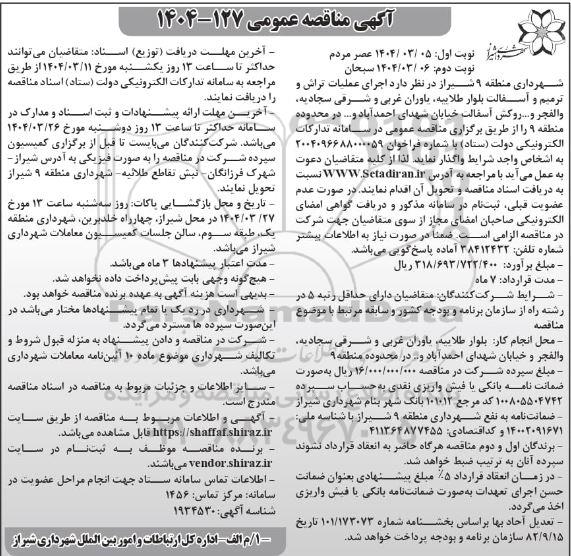 آگهی مناقصه عمومی ۱۲۷-۱۴۰۴
نوبت اول: ۰۵ /۰۳ /۱۴۰۴ عصر مردم
نوبت دوم: ۰۶ /۰۳ /۱۴۰۴ سبحان
شهرداری منطقه ۹ شیراز در نظر دارد اجرای عملیات تراش و
ترمیم و آسفالت بلوار طلاییه، یاوران غربی و شرقی سجادیه،
والفجر و...روکش آسفالت خیابان شهدای احمدآباد و... در محدوده
منطقه ۹ را از طریق برگزاری مناقصه عمومی در سامانه تدارکات
الکترونیکی دولت (ستاد) با شماره فراخوان ۲۰۰۴۰۹۶۶۸۸۰۰۰۰۵۹
به اشخاص واجد شرایط واگذار نماید. لذا از کلیه متقاضیان دعوت
به عمل می‌آید با مراجعه به آدرس WWW.Setadiran.ir نسبت
به دریافت اسناد مناقصه و تحویل آن اقدام نمایند. در صورت عدم
عضویت قبلی، ثبت‌نام در سامانه مذکور و دریافت گواهی امضای
الکترونیکی صاحبان امضای مجاز از سوی متقاضیان جهت شرکت
در مناقصه الزامی است. ضمناً در صورت نیاز به اطلاعات بیشتر
شماره تلفن: ۳۸۴۱۲۴۳۲ آماده پاسخ‌گویی می‌باشد.
- مبلغ برآورد: ۳۱۸/۶۹۳/۷۲۲/۴۰۰ ریال
- مدت قرارداد: ۷ ماه
- شرایط شرکت‌کنندگان: متقاضیان دارای حداقل رتبه ۵ در
رشته راه از سازمان برنامه و بودجه کشور و سابقه مرتبط با موضوع
مناقصه
- محل انجام کار: بلوار طلاییه، یاوران غربی و شرقی سجادیه،
والفجر و خیابان شهدای احمدآباد و... در محدوده منطقه ۹
- مبلغ سپرده شرکت در مناقصه ۱۶/۰۰۰/۰۰۰/۰۰۰ ریال به‌صورت
ضمانت نامه بانکی یا فیش واریزی نقدی به‌حساب سپرده
۱۰۰۸۰۵۵۰۴۷۴۲ کد مرجع ۱۰۱۰۲ بانک شهر بنام شهرداری شیراز
- ضمانت‌نامه به نفع شهرداری منطقه ۹ شیراز با شناسه ملی:
۱۴۰۰۲۰۹۱۶۷۱ و کد اقتصادی: ۴۱۱۳۶۴۸۷۷۴۵۵
- برندگان اول و دوم مناقصه هرگاه حاضر به انعقاد قرارداد نشوند
سپرده آنان به ترتیب ضبط خواهد شد.
- در زمان انعقاد قرارداد ۵٪ مبلغ پیشنهادی بعنوان ضمانت
حسن اجرای تعهدات به‌صورت ضمانت‌نامه بانکی یا فیش واریزی
اخذ می‌گردد.
- تعدیل آحاد بها براساس بخشنامه شماره ۱۰۱/۱۷۳۰۷۳ تاریخ
۸۲/۹/۱۵ سازمان برنامه و بودجه پرداخت خواهد شد.
- آخرین مهلت دریافت (توزیع) اسناد: متقاضیان می‌توانند
حداکثر تا ساعت ۱۳ روز یکشنبه مورخ ۱۴۰۴/۰۳/۱۱ از طریق
مراجعه به سامانه تدارکات الکترونیکی دولت (ستاد) اسناد مناقصه
را دریافت نمایند.
- آخرین مهلت ارائه پیشنهادات و ثبت اسناد و مدارک در
سامانه حداکثر تا ساعت ۱۳ روز دوشنبه مورخ ۱۴۰۴/۰۳/۲۶
می‌باشد. شرکت‌کنندگان می‌بایست تا قبل از برگزاری کمیسیون
سپرده شرکت در مناقصه را به صورت فیزیکی به آدرس شیراز-
شهرک فرزانگان- نبش تقاطع طلائیه- شهرداری منطقه ۹ شیراز
تحویل نمایند.
- تاریخ و محل بازگشایی پاکات: روز سه‌شنبه ساعت ۱۳ مورخ
۲۷ /۱۴۰۴/۰۳ در محل شیراز، چهارراه خلدبرین، شهرداری منطقه
یک، طبقه سوم، سالن جلسات کمیسیون معاملات شهرداری
شیراز می‌باشد.
- مدت اعتبار پیشنهادها ۳ ماه می‌باشد.
- هیچ‌گونه وجهی بابت پیش‌پرداخت داده نخواهد شد.
- بدیهی است هزینه آگهی به عهده برنده مناقصه خواهد بود.
- شهرداری در رد یک یا تمام پیشنهادها مختار می‌باشد در
این‌صورت سپرده ها مسترد می‌گردد.
- شرکت در مناقصه و دادن پیشنهاد به منزله قبول شروط و
تکالیف شهرداری موضوع ماده ۱۰ آئین‌نامه معاملات شهرداری
می‌باشد.
- سایر اطلاعات و جزئیات مربوط به مناقصه در اسناد مناقصه
مندرج است.
- آگهی و اطلاعات مربوط به مناقصه از طریق سایت
https://shaffaf.shiraz.ir قابل مشاهده می‌باشد.
- برنده مناقصه موظف به ثبت‌نام در سایت
vendor.shiraz.ir می‌باشند.
- اطلاعات تماس سامانه ستاد جهت انجام مراحل عضویت در
سامانه: مرکز تماس: ۱۴۵۶
شناسه آگهی: ۱۹۳۴۵۳۰
۱/۰ م الف- اداره کل ارتباطات و امور بین الملل شهرداری شیراز